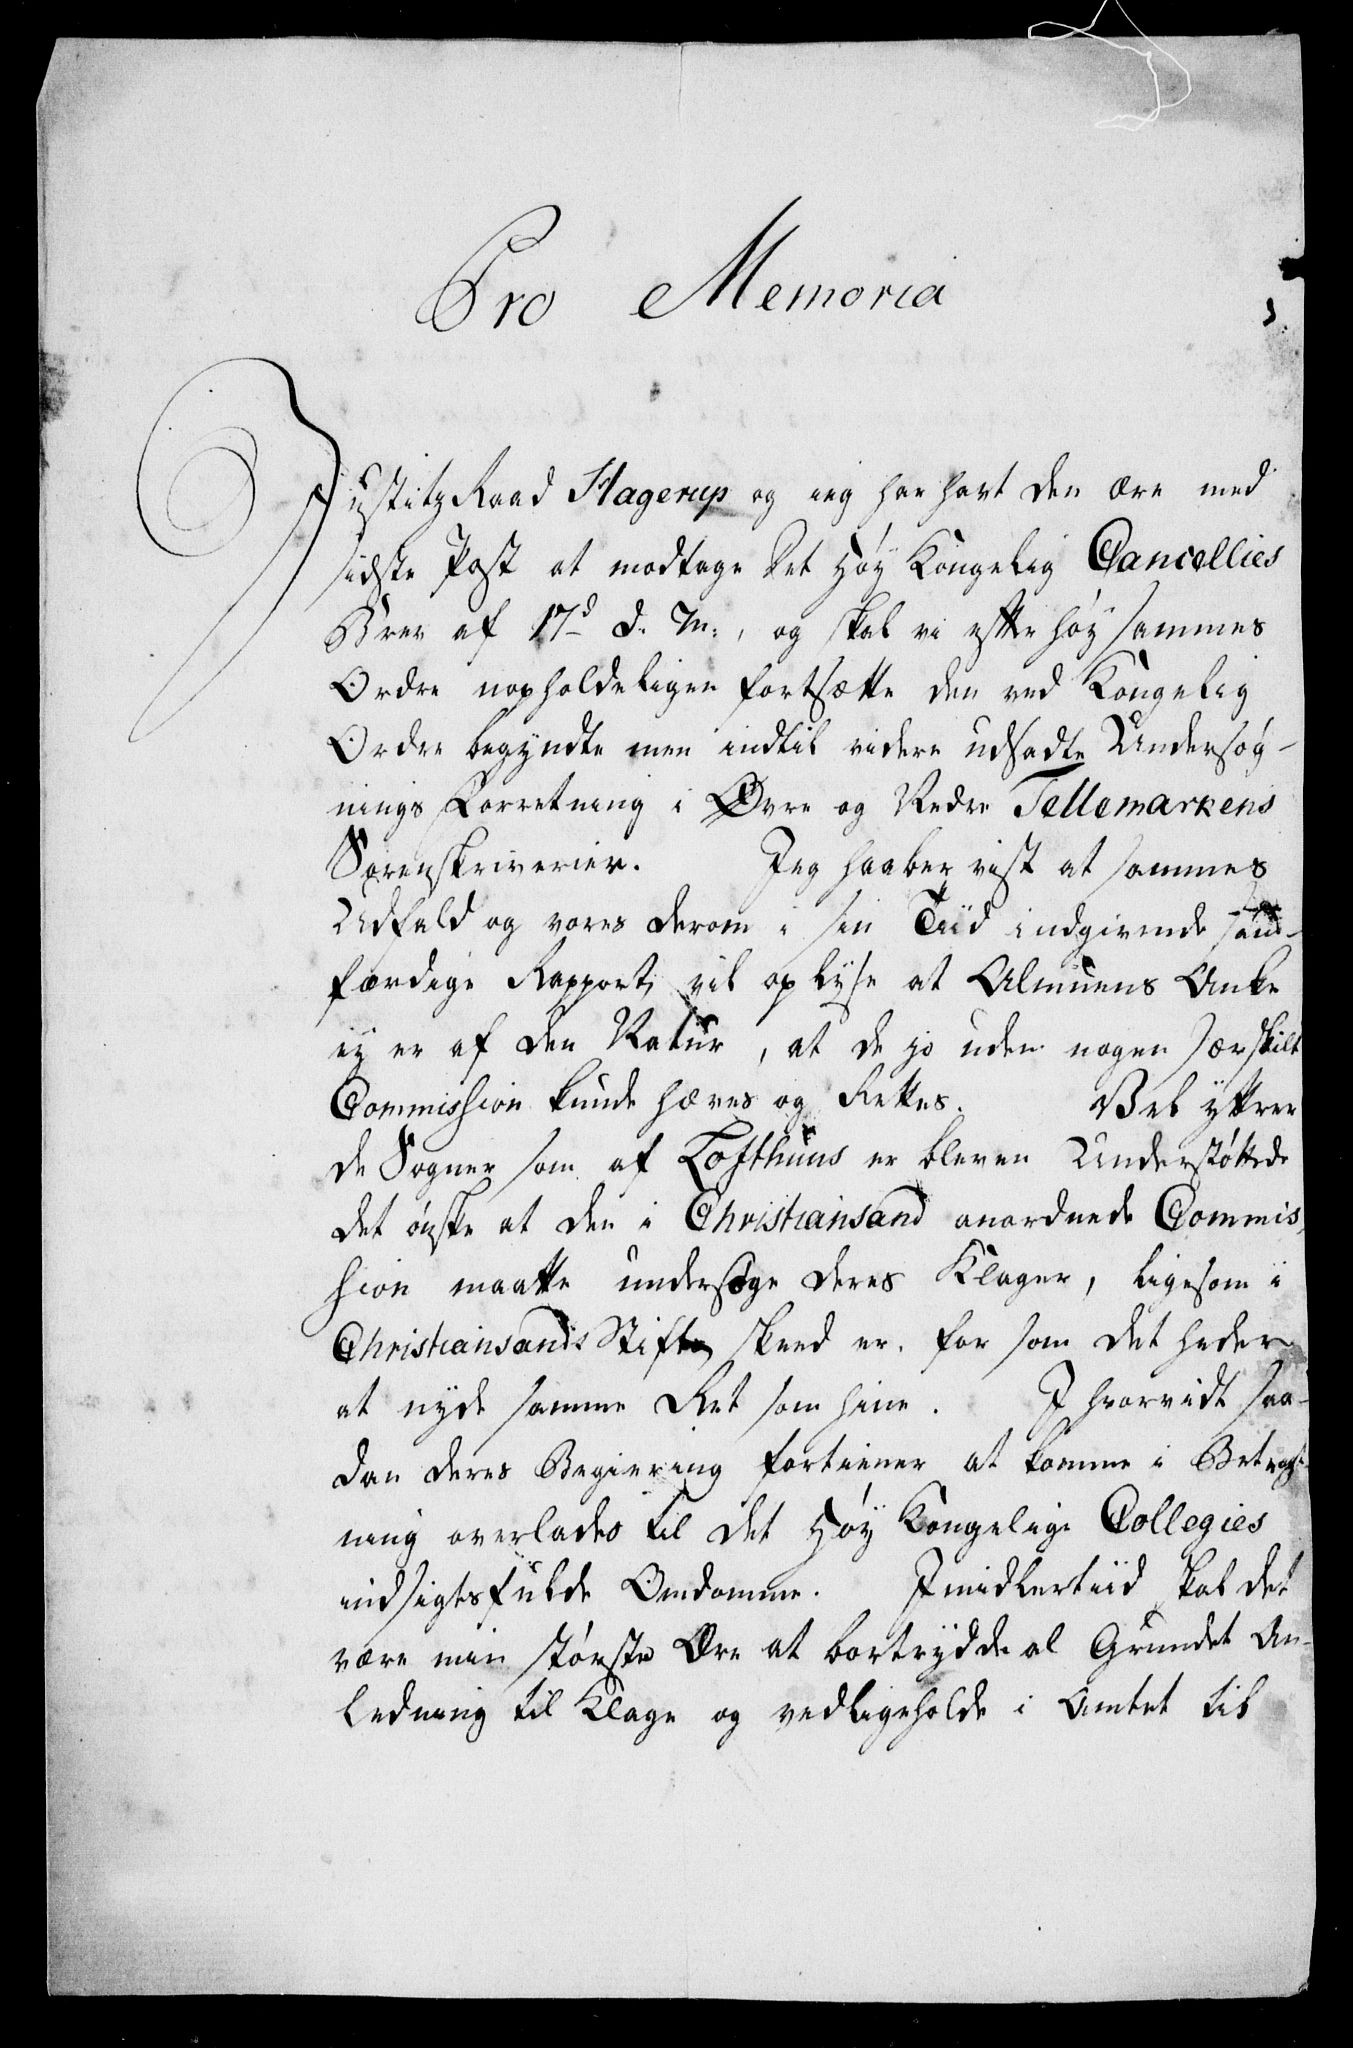 Pro Memoria
Justitz Raad Hagerup og ieg har havt den Ære med
sidste Post at modtage Det Høy Kongelig Cancellies
Brev af 17d d. M:, og skal vi efter høysammes
Ordre uopholdeligen fortsætte den ved Kongelig
Ordre begyndte men indtil videre udsadte Undersøg-
nings Forretning i Øvre og Nedre Tellemarkens
Sorenskriverier. Jeg haaber vist at sammes
Udfald og vores derom i sin Tiid indgivende sand-
færdige Rapport, vil oplyse at Almuens Anke
ey er af den Natur, at de jo uden nogen særskilt
Commission kunde hæves og Rettes. Vel yttrer
de Sogner som af Lofthuus er bleven Understøttede
det ønske at den i Christiansand anordnede Commis,
sion maatte undersøge deres Klager, ligesom i
Christiansands Stift skeed er, for som det heder
at nyde samme Ret som hine. I hvorvidt saa-
dan deres Begiering fortiener at komme i Betragt-
ning overlades til det Høy Kongelige Collegies
indsigtsfulde Omdømme. Imidlertiid skal det
være min største Ære at bortrydde al Grundet An-
ledning til Klage og vedligeholde i Amtet til